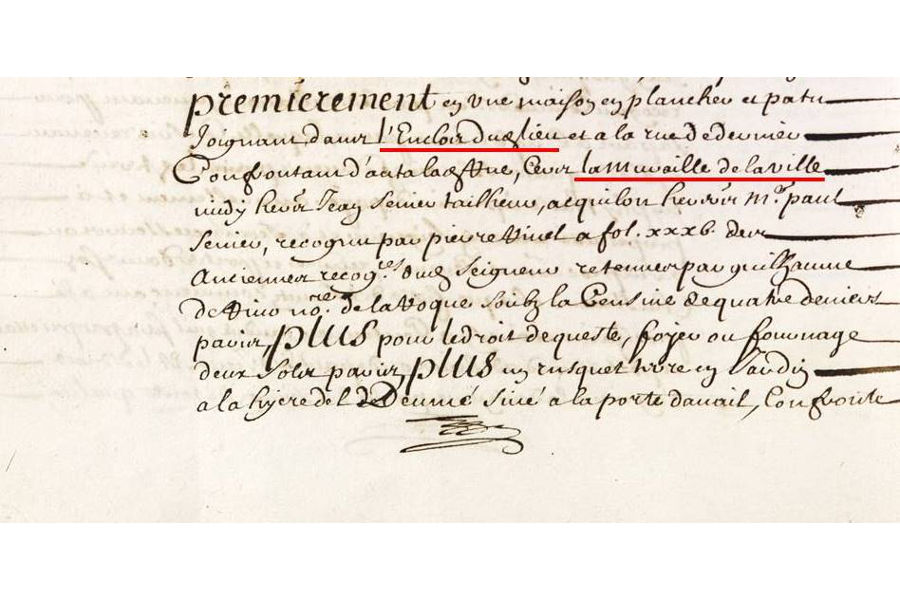 premierement en une maison en plancher et patu
Joignant dans l'Encloir dud lieu et a la rue de dernier
Confrontant d'auta lad Rue, Cers la muraille de la ville
midy heoirs Jean Senier tailheur, aequilon heoirs mᵉ paul
Senier, recognu par pierre Vinel a fol. xxxb. des
Anciennes recogᵉˢ dud Seigneur retenues par guilhaume
de noʳᵉ de la Roque soubz la Censive de quatre deniers
pauir, plus pour le droit de queste, foyer ou fournage
deux solz pauir, plus un rusquet terre en Jardin
a la de Sive a la porte dauait, Confronte